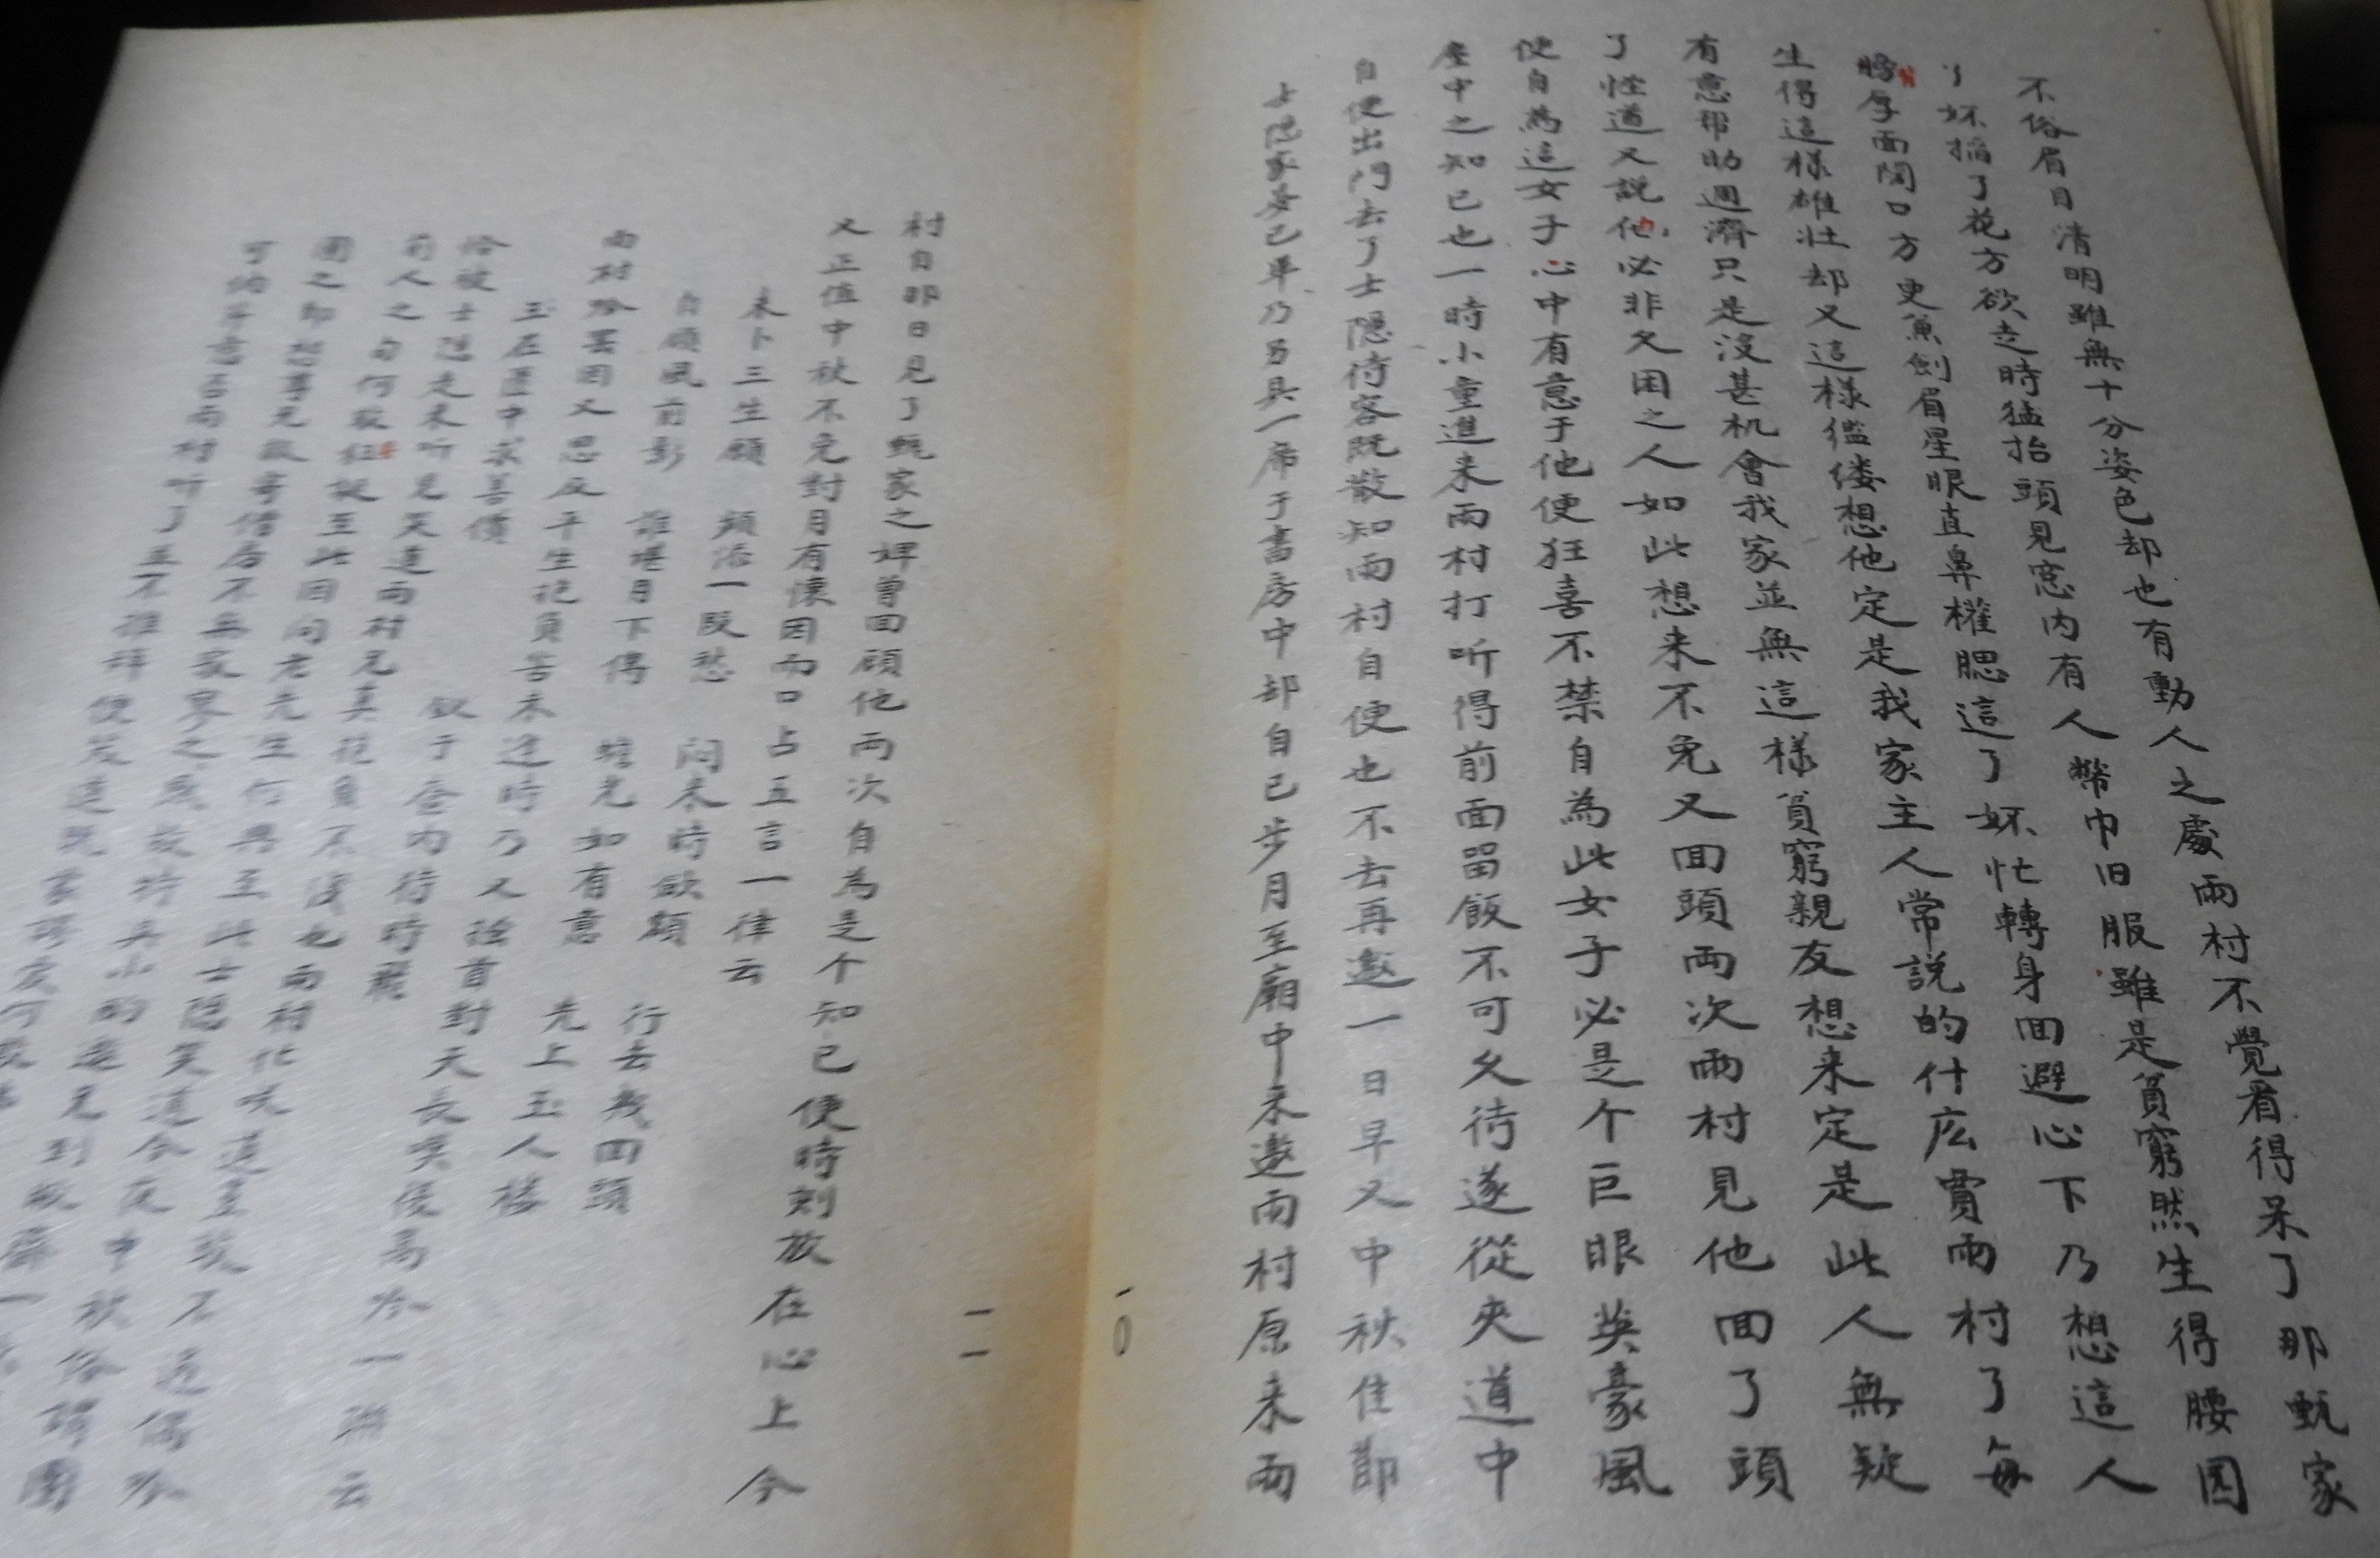 不俗眉目清明雖無十分姿色却也有動人之處雨村不覺看得呆了那甄家
了妚掐了花方欲走時猛抬頭見窓内有人幣巾旧服雖是貧窮然生得腰圆
膀厚面闊口方更兼劍眉星眼直鼻權腮這了妚忙轉身回避心下乃想這人
生得這樣雄壮却又這樣襤缕想他定是我家主人常説的什庅賈雨村了每
有意帮助週濟只是没甚机會我家並無這樣貧窮親友想来定是此人無疑
了怪道又説他必非久困之人如此想来不免又回頭兩次雨村見他回了頭
便自為這女子心中有意于他便狂喜不禁自為此女子必是个巨眼英豪風
塵中之知已也一時小童進来雨村打听得前面留飯不可久待遂從夾道中
自便出門去了士隱待客既散知雨村自便也不去再邀一日早又中秋佳節
士隐家宴已畢乃另具一席于書房中却自已步月至廟中来邀雨村原来雨
一〇
一一
村自那日見了甄家之婢曾回顧他兩次自為是个知已便時刻放在心上今
又正值中秋不免對月有懐因而口占五言一律云
未卜三生願 頻添一段愁 闷来時歛額 行去幾回頭
自顧風前影 誰堪月下俦 蟾光如有意 先上玉人楼
雨村吟罢因又思及平生抱負苦未逢時乃又搔首對天長嘆復高吟一聯云
玉在匱中求善價 釵于奩内待時飛
恰被士隐走来听見笑道雨村兄真抱負不淺也雨村忙咲道
前人之句何敢狂誕至此因问老先生何興至此士隐笑道今夜中秋俗謂團
圓之節想尊兄旅寄僧房不無寂寥之感故特具小酌邀兄到敝齋一
可納芹意否雨村听了並不推辞便笑道既蒙謬愛何敢